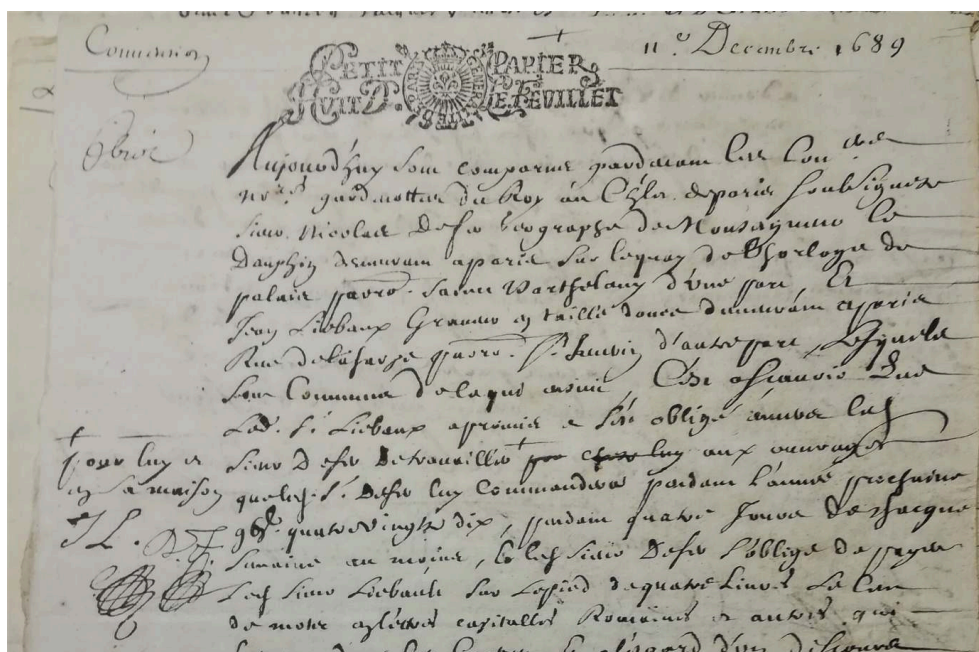 Convention
11e Decembre 1689
PETIT PAPIER
HUIT D. LE FEUILLET
GENERALITE DE PARIS
Aujourd'huy sont comparus pardevant les Con.ers
no.res gardnottes du Roy au Ch.let de paris soubsignez
sieur Nicolas Defer Geographe de Monseigneur le
Dauphin demeurant a paris sur le quay de l'horloge du
palais parr. saint Barthelemy d'une part, Et
Jean Liebaux Graveur en taille douce demeurant a paris
Rue de la harpe parr. St. Severin d'autre part, Lesquels
sont Convenus de ce qui ensuit, C'est asscavoir Que
Led. Sr. Liebaux a promis et s'est obligé envers led.
sieur Defer de travailler luy aux ouvrages
que led. Sr. Defer luy Commandera pendant l'année prochaine
quatre vingts dix, pendant quatre Jours de chacque
semaine au moins, Et led. sieur Defer s'oblige de payer
aud. sieur Liebault sur le pied de quatre Livres Le Cent
de mots en lettres capitalles Romaines et autres qui
pour luy et
en sa maison
JL. DF